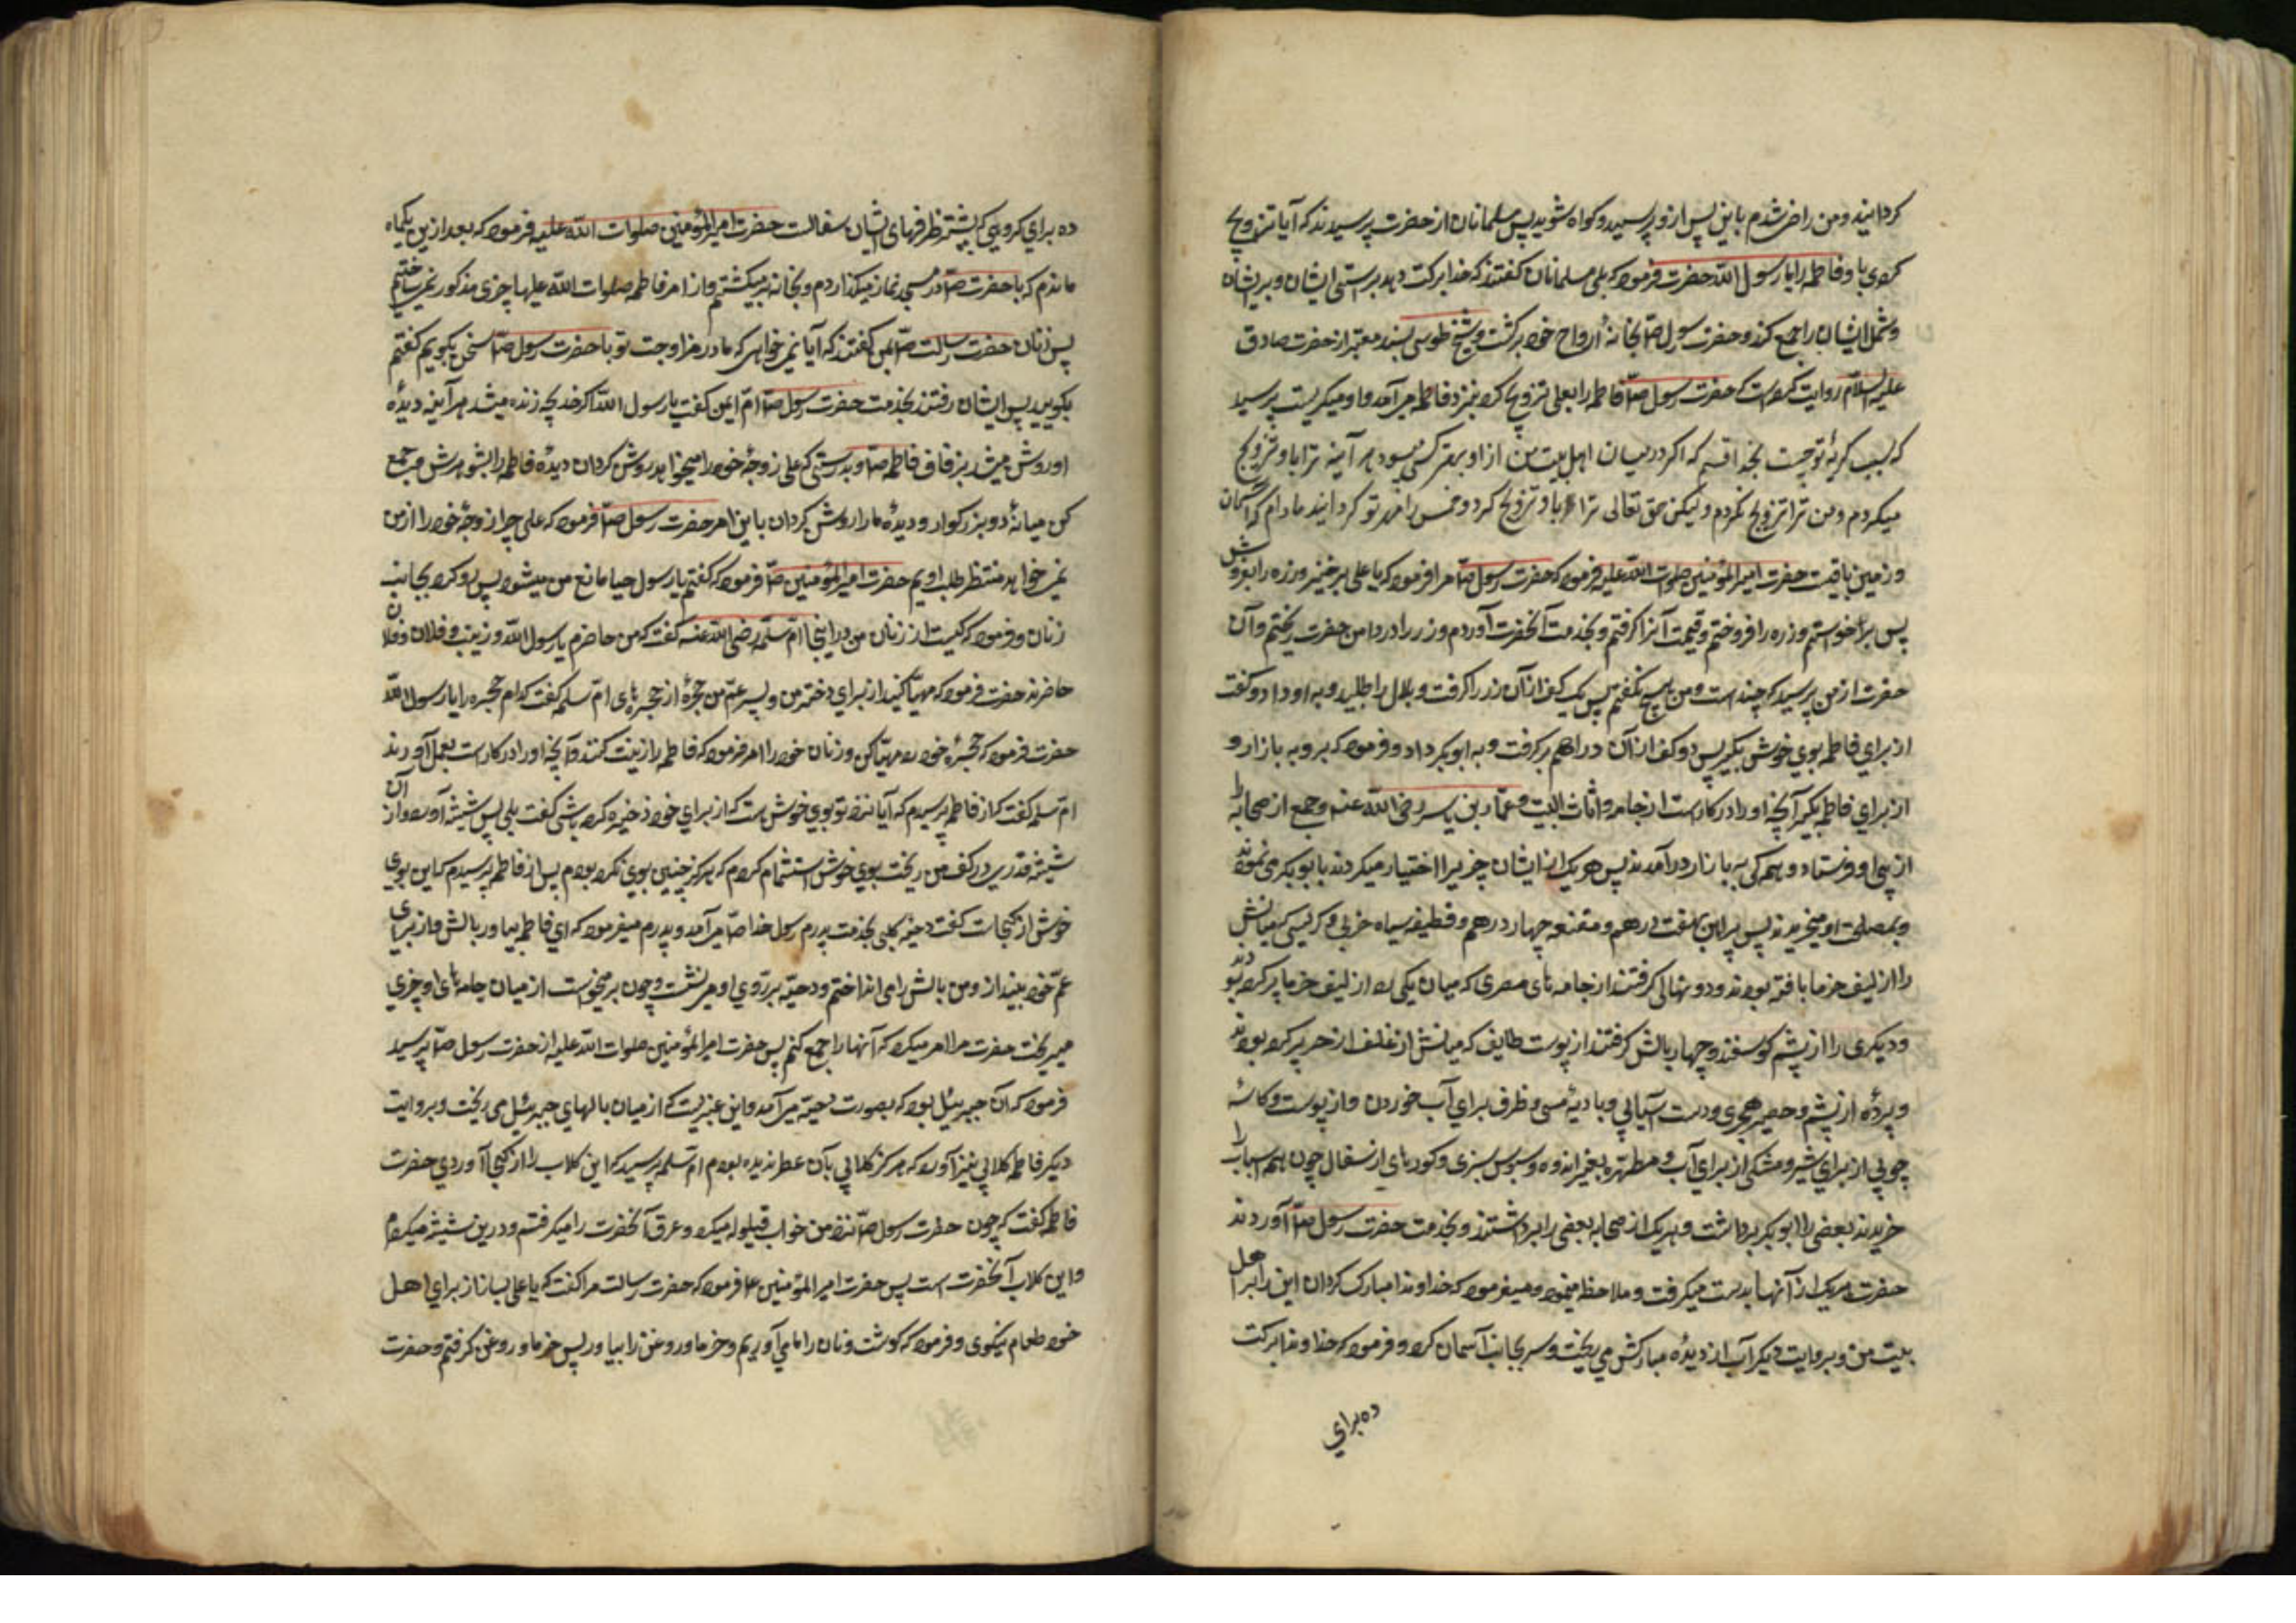 کردانید و من راضی شدم باین پس ازو پرسید و کواه شوید پس مسلمانان از حضرت پرسیدند که آیا تزویج
کردی باو فاطمه را یا رسول الله حضرت فرمود که بلی مسلمانان کفتند که خدا برکت دهد برستی ایشان و بر ایشان
و شمل ایشان را جمع کند و حضرت رسول صلّا بخانهٔ ازواج خود برکشت و شیخ طوسی بسند معتبر از حضرت صادق
علیه السلام روایت کرده است که حضرت رسول صلّا فاطمه را بعلی تزویج کرد بنزد فاطمه می آمد و او میکریست پرسید
که سبب کریهٔ تو چیست بخدا قسم که اکر در میان اهل بیت من از او بهتر کسی میبود هر آینه ترا باو تزویج
میکردم و من ترا تزویج نکردم و لیکن حق تعالی ترا باو تزویج کرد و خمس را مهر تو کردانید مادام که آسمان
و زمین باقیست حضرت امیر المؤمنین صلوات الله علیه فرمود که حضرت رسول صلّا مرا فرمود که یا علی برخیز و زره را بفروش
پس برخواستم و زره را فروختم و قیمت آنرا کرفتم و بخدمت آنحضرت آوردم و زر را در دامن حضرت ریختم و آن
حضرت از من پرسید که چند است و من هیچ نکفتم پس یک کف از آن زر را کرفت و بلال را طلبید و به او داد و کفت
از برای فاطمه بوی خوش بکیر پس دو کف از آن دراهم برکرفت و به ابو بکر داد و فرمود که برو به بازار و
از برای فاطمه بکیر آنچه او را در کار است از جامه و اثاث البیت و عمّار بن یاسر رضی الله عنه و جمع از صحابه را
از پی او فرستاد و همکی به بازار درآمدند پس هر یک از ایشان چیزیرا اختیار میکردند بابو بکر می نمودند
و بمصلحت او میخریدند پس پیراهن بهفت درهم و مقنعه چهار درهم و قطیفه سیاه خیبری و کرسی که میانش
را از لیف خرما بافته بودند و دو نهالی کرفتند از جامه های مصری که میان یکی را از لیف خرما پر کرده بودند
و دیکری را از پشم کوسفند و چهار بالش کرفتند از پوست طایف که میانش از علف اذخر پر کرده بودند
و پردهٔ از پشم و حصیر هجری و دست آسیایی و بادیهٔ مسی و ظرف برای آب خوردن و از پوست و کاسهٔ
چوبی از برای شیر و مشکی از برای آب و مطهره بقیر اندوده و سبوی سبزی و کوزهای از سفال چون همه اسباب را
خریدند بعضی را ابو بکر برداشت و هر یک از صحابه بعضی را برداشتند و بخدمت حضرت رسول صلّا آوردند
حضرت هر یک از آنها بدست میکرفت و ملاحظه مینمود و میفرمود که خداوندا مبارک کردان این را بر اهل
بیت من و بروایت دیکر آب از دیدهٔ مبارکش می ریخت و سر بجانب آسمان کرد و فرمود که خداوندا برکت
ده برای
ده برای کروهی که بیشتر ظرفهای ایشان سفالست حضرت امیر المؤمنین صلوات الله علیه فرمود که بعد ازین یکماه
ماندم که با حضرت صلّا در مسجد نماز میکذاردم و بخانه برمیکشتم و از امر فاطمه صلوات الله علیها چیزی مذکور نمی ساختم
پس زنان حضرت رسالت صلّا بمن کفتند که آیا نمی خواهی که ما در مزاوجت تو با حضرت رسول صلّا سخن بکوییم کفتم
بکویید پس ایشان رفتند بخدمت حضرت رسول صلّا امّ ایمن کفت یا رسول الله اکر خدیجه زنده میشد هر آینه دیدهٔ
او روشن میشد بزفاف فاطمه صلّا و بدرستی که علی زوجهٔ خود را میخواهد روشن کردان دیدهٔ فاطمه را بشوهرش و جمع
کن میانهٔ دو بزرکوار و دیدهٔ ما را روشن کردان باین امر حضرت رسول صلّا فرمود که علی چرا زوجهٔ خود را از من
نمی خواهد منتظر طلب اویم حضرت امیر المؤمنین صلّا فرمود که کفتم یا رسول حیا مانع من میشود پس رو کرد بجانب
زنان و فرمود که کیست از زنان من در اینجا امّ سلمه رضی الله عنه کفت که من حاضرم یا رسول الله و زینب و فلان و فلان
حاضرند حضرت فرمود که مهیّا کنید از برای دختر من و پسر عمّ من حجرهٔ از حجرهای امّ سلمه کفت کدام حجره را یا رسول الله
حضرت فرمود که حجرهٔ خود را مهیّا کن و زنان خود را امر فرمود که فاطمه را زینت کنند و آنچه او را در کار است بعمل آورند
امّ سلمه کفت که از فاطمه پرسیدم که آیا نزد تو بوی خوش هست که از برای خود ذخیره کرده باشی کفت بلی پس شیشه آورد و از آن
شیشه قدری در کف من ریخت بوی خوش استشمام کردم که هرکز چنین بوی نکرده بودم پس از فاطمه پرسیدم که این بوی
خوش از کجاست کفت دحیه کلبی بخدمت پدرم رسول خدا صلّا می آمد و پدرم میفرمود که ای فاطمه بیاور بالش و از برای
عمّ خود بینداز و من بالش را می انداختم و دحیّه بر روی او می نشست و چون بر میخواست از میان جامه های او چیزی
میریخت حضرت مرا امر میکرد که آنها را جمع کنم پس حضرت امیر المؤمنین صلوات الله علیه از حضرت رسول صلّا پرسید
فرمود که آن جبرئیل بود که بصورت دحیّه می آمد و این عنبریست که از میان بالهای جبرئیل می ریخت و بروایت
دیکر فاطمه کلابی نیز آورد که هرکز کلابی بآن عطر ندیده بودم امّ سلمه پرسید که این کلاب را از کجا آوردی حضرت
فاطمه کفت که چون حضرت رسول صلّا نزد من خواب قیلوله میکرد و عرق آنحضرت را میکرفتم و درین شیشه میکردم
و این کلاب آنحضرت است پس حضرت امیر المؤمنین ع فرمود که حضرت رسالت مرا کفت که یا علی بساز از برای اهل
خود طعام نیکوی و فرمود که کوشت و نان را ما می آوریم و خرما و روغن را بیاور پس خرما و روغن کرفتم و حضرت